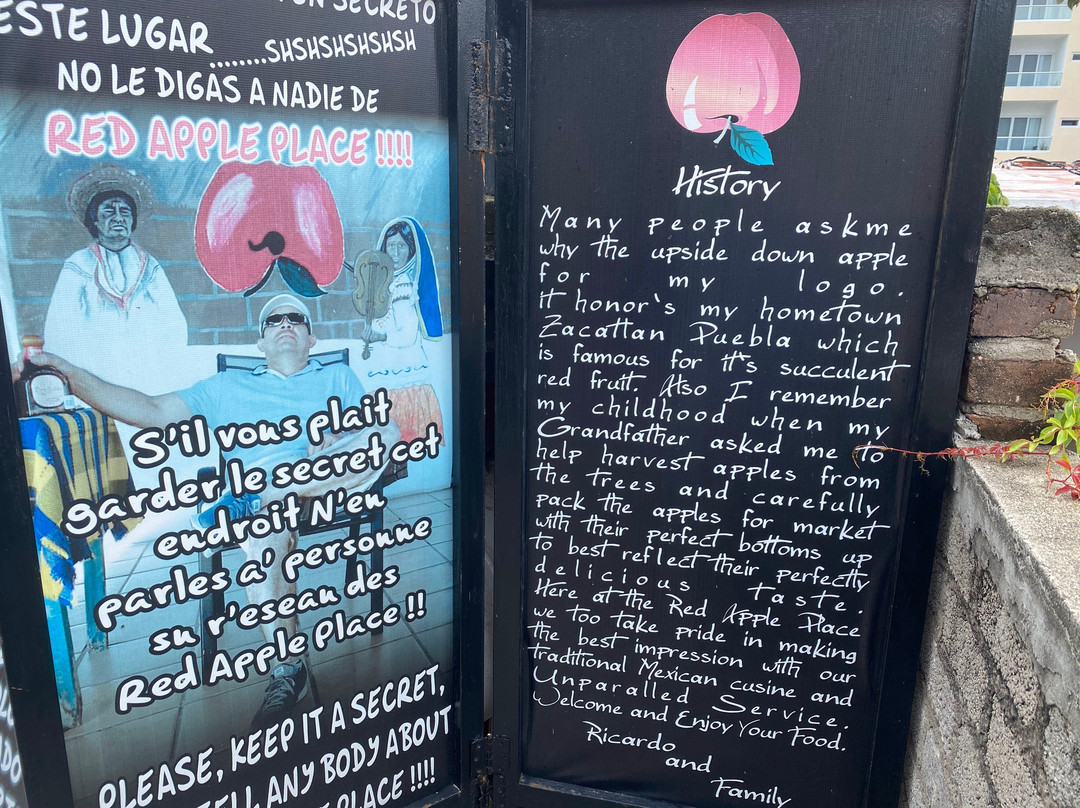 UN SECRETO
ESTE LUGAR ........SHSHSHSHSHSH
NO LE DIGAS A NADIE DE
RED APPLE PLACE !!!!
S'il vous plait
garder le secret cet
endroit N'en
parles a' personne
su r'esean des
Red Apple Place !!
PLEASE, KEEP IT A SECRET,
TELL ANY BODY ABOUT
PLACE !!!!
History
Many people askme
why the upside down apple
for my logo.
it honor's my hometown
Zacattan Puebla which
is famous for it's succulent
red fruit. Also I remember
my childhood when my
Grandfather asked me to
help harvest apples from
the trees and carefully
pack the apples for market
with their perfect bottoms up
to best reflect their perfectly
delicious taste.
Here at the Red Apple Place
we too take pride in making
the best impression with our
traditional Mexican cusine and
Unparalled Service.
Welcome and Enjoy Your Food.
Ricardo
and
Family